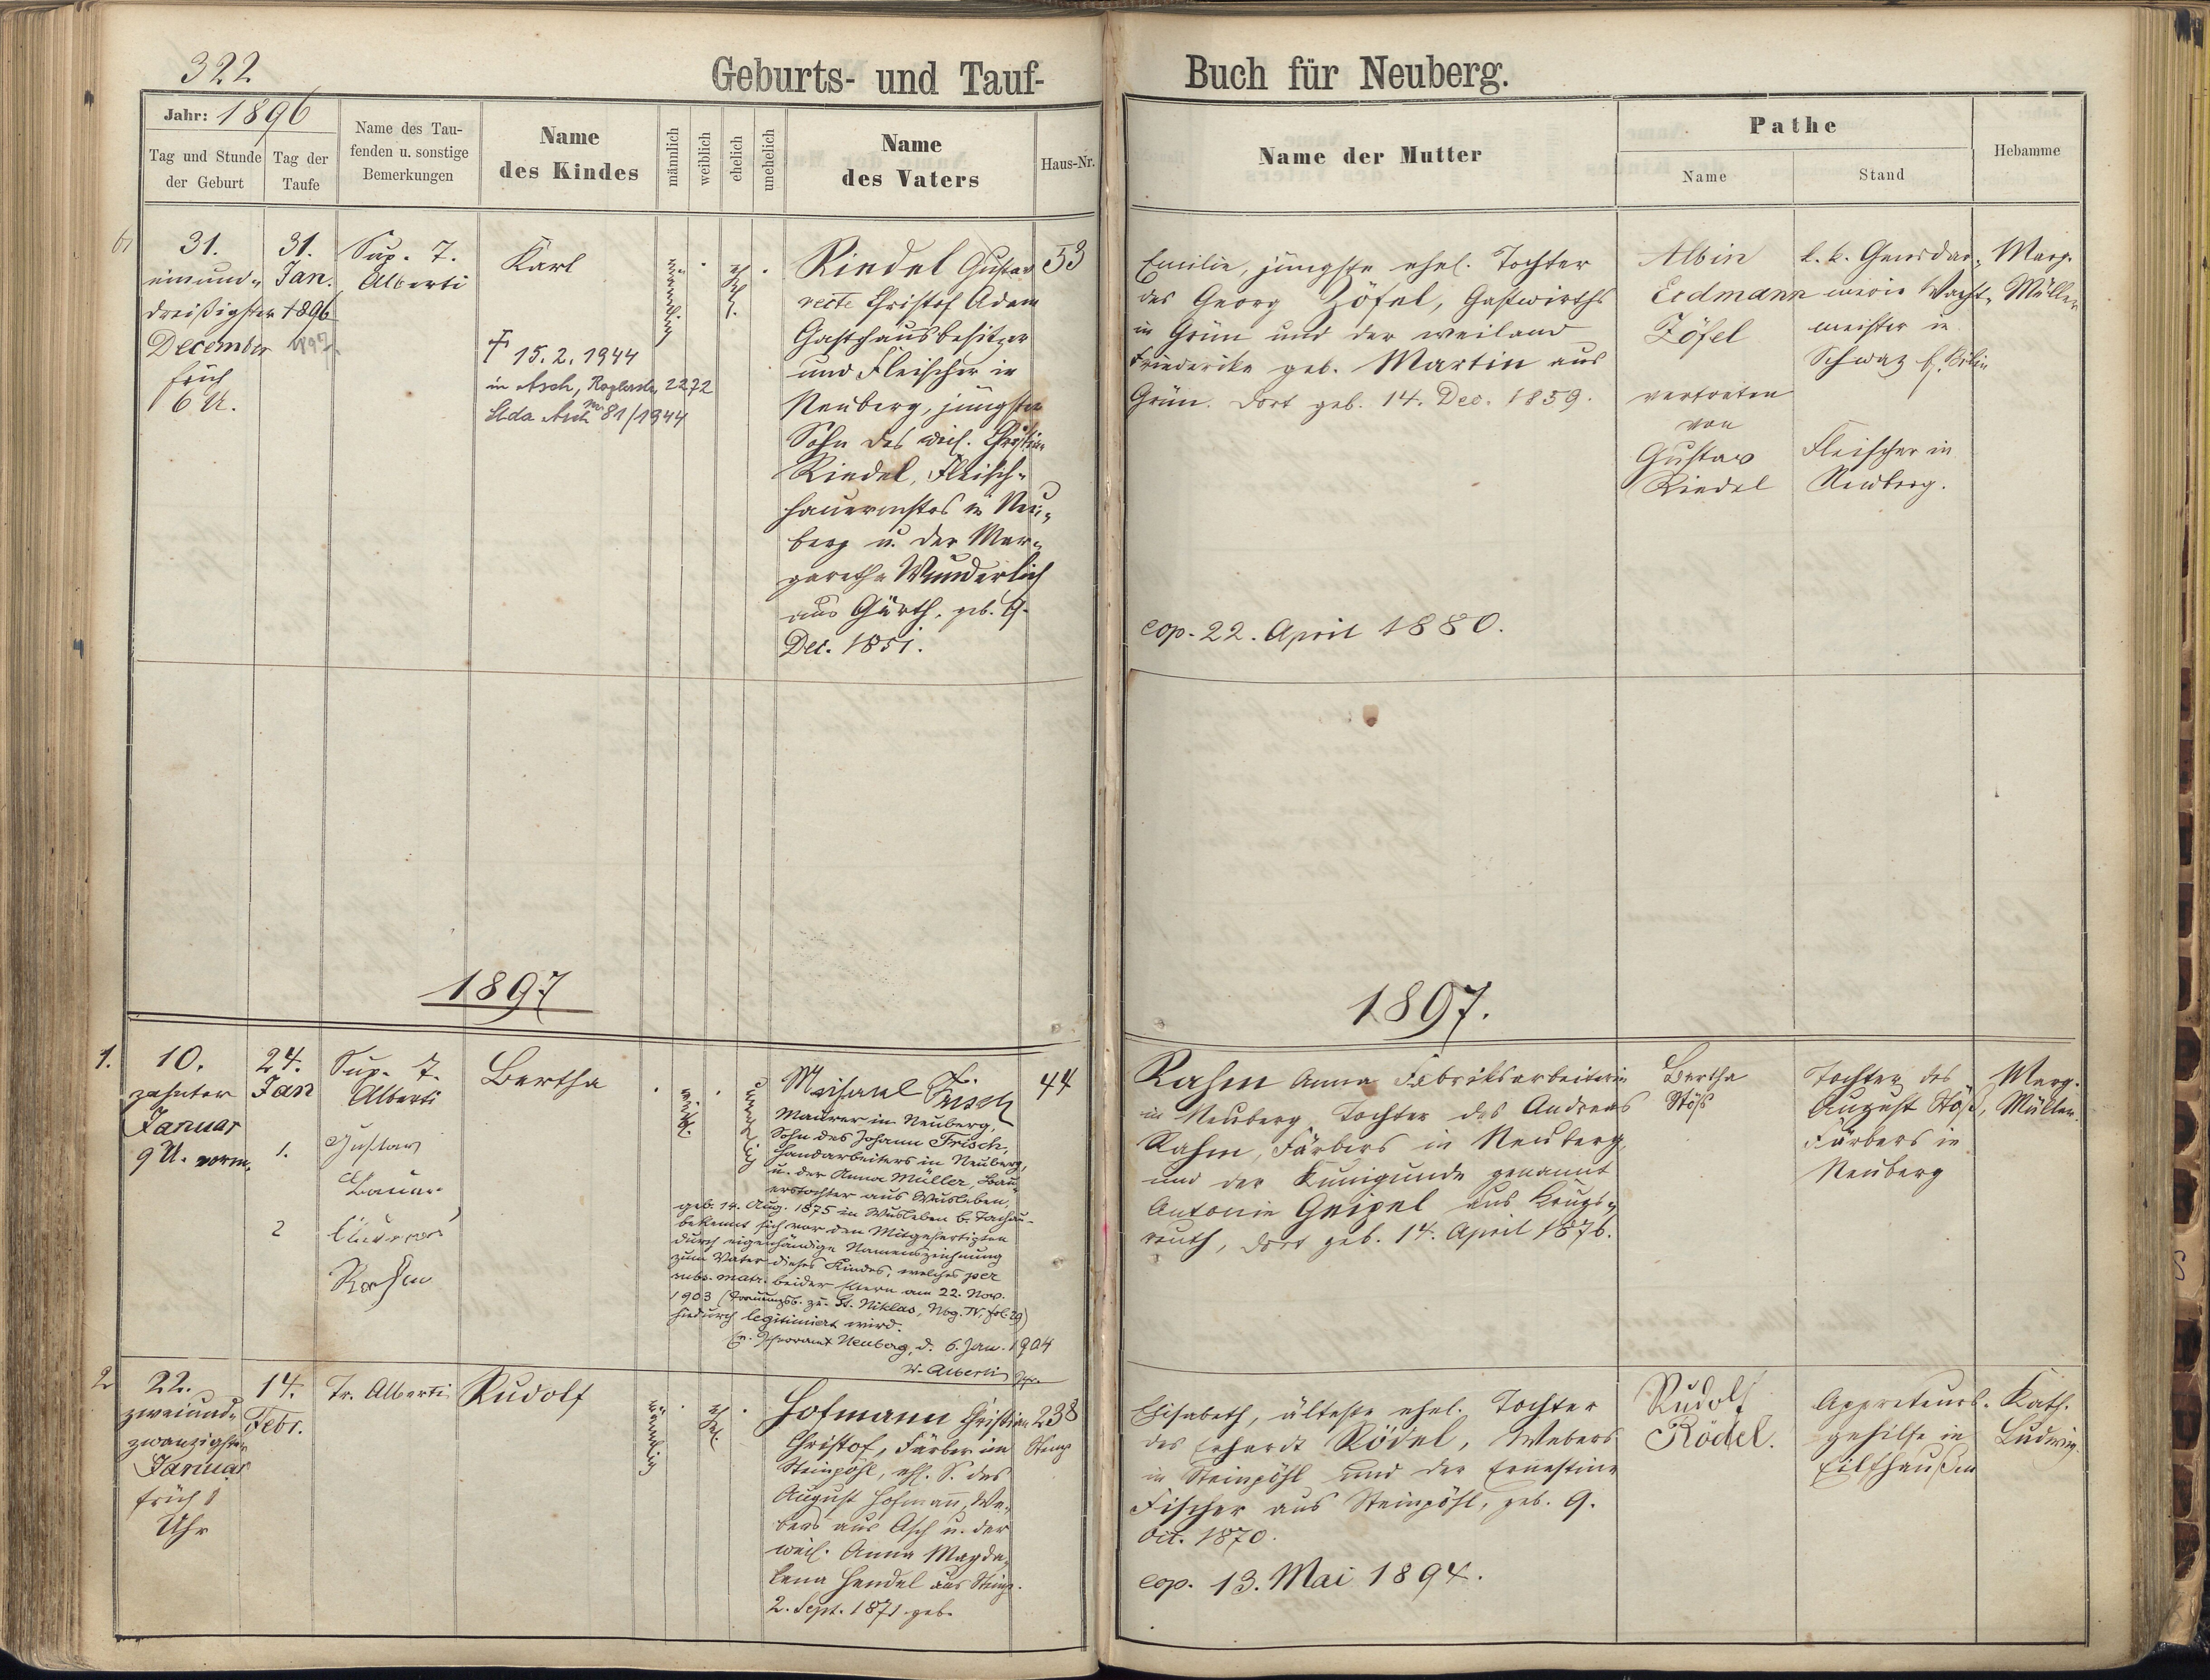 322
Geburts- und Tauf-
Buch für Neuberg.
Jahr: 1896
Tag und Stunde der Geburt
Tag der Taufe
Name des Tau-
fenden u. sonstige
Bemerkungen
Name
des Kindes
männlich
weiblich
ehelich
unehelich
Name
des Vaters
Haus-Nr.
Name der Mutter
Pathe
Name
Stand
Hebamme
31.
einund-
dreißigster
December
früh
6 U.
31.
Jan.
1896
1897.
Sup. T.
Alberti
Karl
† 15. 2. 1944
in Asch, 2272
Stda Asch Nr 81/1944
männl.
ehl.
Riedel Gustav
recte Christof Adam
Gasthausbesitzer
und Fleischer in
Neuberg, jüngster
Sohn des weil. Christian
Riedel, Fleisch-
hauermstrs in Neu-
berg u. der Mar-
garetha Wunderlich
aus Gürth, geb. 9.
Dec. 1851.
53
Emilie, jüngste ehel. Tochter
des Georg Zöfel, Gastwirths
in Grün und der weiland
Friederike geb. Martin aus
Grün. dort geb. 14. Dec. 1859.
cop. 22. April 1880.
Albin
Erdmann
Zöfel
vertreten
von
Gustav
Riedel
k. k. Gensdar-
merie Wacht-
meister in
Schwaz b. Bilin
Fleischer in
Neuberg.
Marg.
Müller
1897
1897.
1.
10.
zehnter
Januar
9 U. vorm.
24.
Jan
Sup. T.
Alberti
1. Gustav
Bauer
2
Rahm
Bertha
weibl.
unehl.
Michael Frisch
Maurer in Neuberg,
Sohn des Johann Frisch,
Handarbeiters in Neuberg,
u. der Anna Müller, Bau-
erstochter aus Wusleben,
geb. 14. Aug. 1875 in Wusleben b. Tachau
bekennt sich vor den Mitgefertigten
durch eigenhändige Namenszeichnung
zum Vater dieses Kindes, welches per
subs. matr. beider Eltern am 22. Nov.
1903 (Trauungsb. zu St. Niklas, Nbg. IV, fol. 29)
hiedurch legitimiert wird.
Ev. Pfarramt Neuberg, d. 6. Jan. 1904
W. Alberti Pfr.
44
Rahm Anna Fabriksarbeiterin
in Neuberg, Tochter des Andreas
Rahm, Färbers in Neuberg
und der Kunigunde genannt
Antonie Geipel aus Krugs-
reuth, dort geb. 14. April 1876.
Bertha
Stöß
Tochter des
August Stöß,
Färbers in
Neuberg
Marg.
Müller
2
22.
zweiund-
zwanzigster
Januar
früh 1
Uhr
14.
Febr.
Tr. Alberti
Rudolf
männl.
ehl.
Hofmann Christian
Christof, Färber in
Steinpöhl, ehl. S. des
August Hofmann, We-
bers aus Asch u. der
weil. Anna Magda-
lena Hendel aus Steinp.
2. Sept. 1871 geb.
238
Steinp
Elisabeth, älteste ehel. Tochter
des Erhardt Rödel, Webers
in Steinpöhl und der Ernestine
Fischer aus Steinpöhl, geb. 9.
Oct. 1870.
cop. 13. Mai 1894.
Rudolf
Rödel.
Appreteurs-
gehilfe in
Eilfhaußen
Kath.
Ludwig.